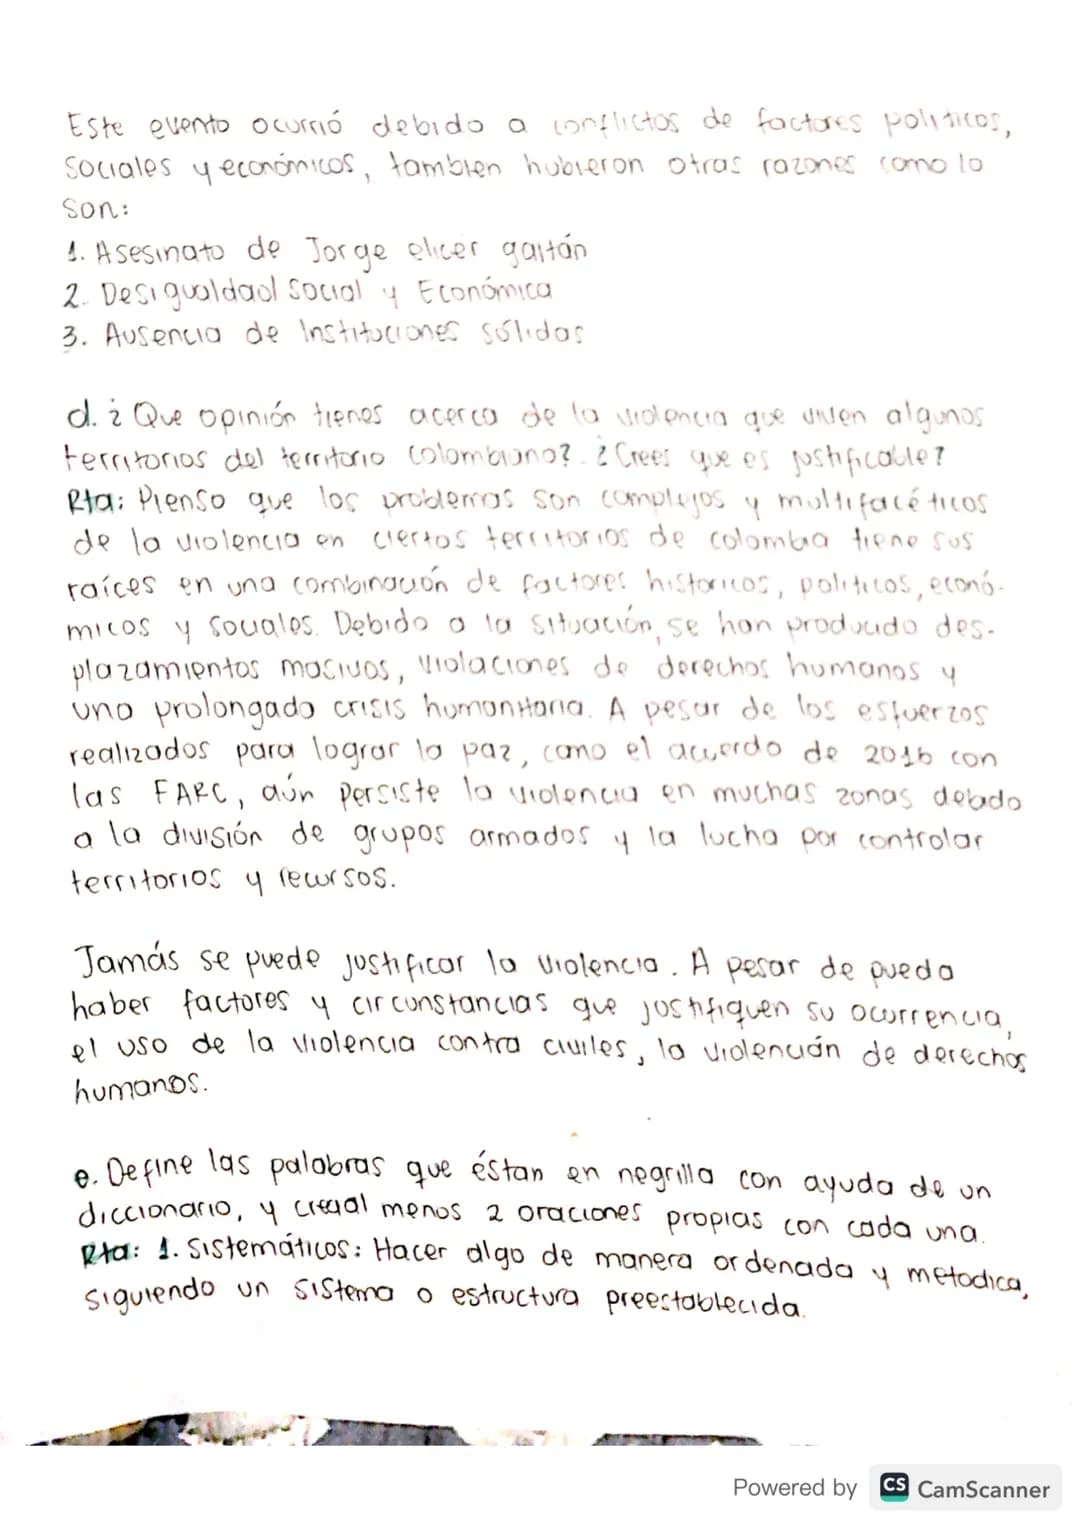 Este evento ocurrió debido a conflictos de factores politicos,
Sociales y económicos, tambien hubieron otras razones como lo
Son:
1. Asesinato de Jorge elicer gaitán
2. Desigualdad Social y Económica
3. Ausencia de Instituciones sólidas
d. ¿Que opinión tienes acerca de la violencia que viven algunos
territorios del territorio Colombiano? ¿Crees que es justificable?
Rta: Pienso que los problemas son complejos y multifacéticos
de la violencia en ciertos territorios de colombia tiene sus
raíces en una combinación de factores historicos, politicos, econó-
micos y sociales. Debido a la situación, se han producido des-
plazamientos masivos, violaciones de derechos humanos y
una prolongado crisis humanitaria. A pesar de los esfuerzos
realizados para lograr la paz, como el acuerdo de 2016 con
las FARC, aún persiste la violencia en muchas zonas debido
a la división de grupos armados y la lucha por controlar
territorios y recursos.
Jamás se puede justificar la violencia. A pesar de pueda
haber factores y circunstancias que justifiquen su ocurrencia,
el uso de la violencia contra civiles, la violención de derechos
humanos.
e. Define las palabras que éstan en negrilla con ayuda de un
diccionario, y crea al menos 2 oraciones propias con cada una.
Rta: 1. Sistemáticos: Hacer algo de manera ordenada y metodica,
siguiendo un sistema o estructura preestablecida.
Powered by CS CamScanner